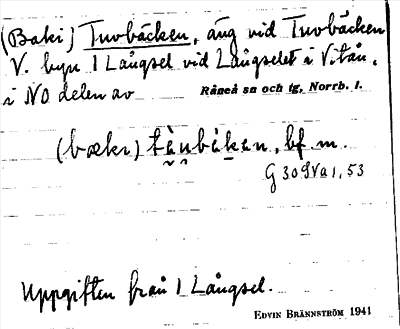 (Baki) Tuvbäcken, äng vid Tuvbäcken
V. byn 1 Långsel vid Långselet i Vitån,
i NO delen av Råneå sn och tg, Norrb. l.
(bækr) bf m.
G 309 Va 1, 53
Uppgiften från 1 Långsel.
EDVIN BRÄNNSTRÖM 1941